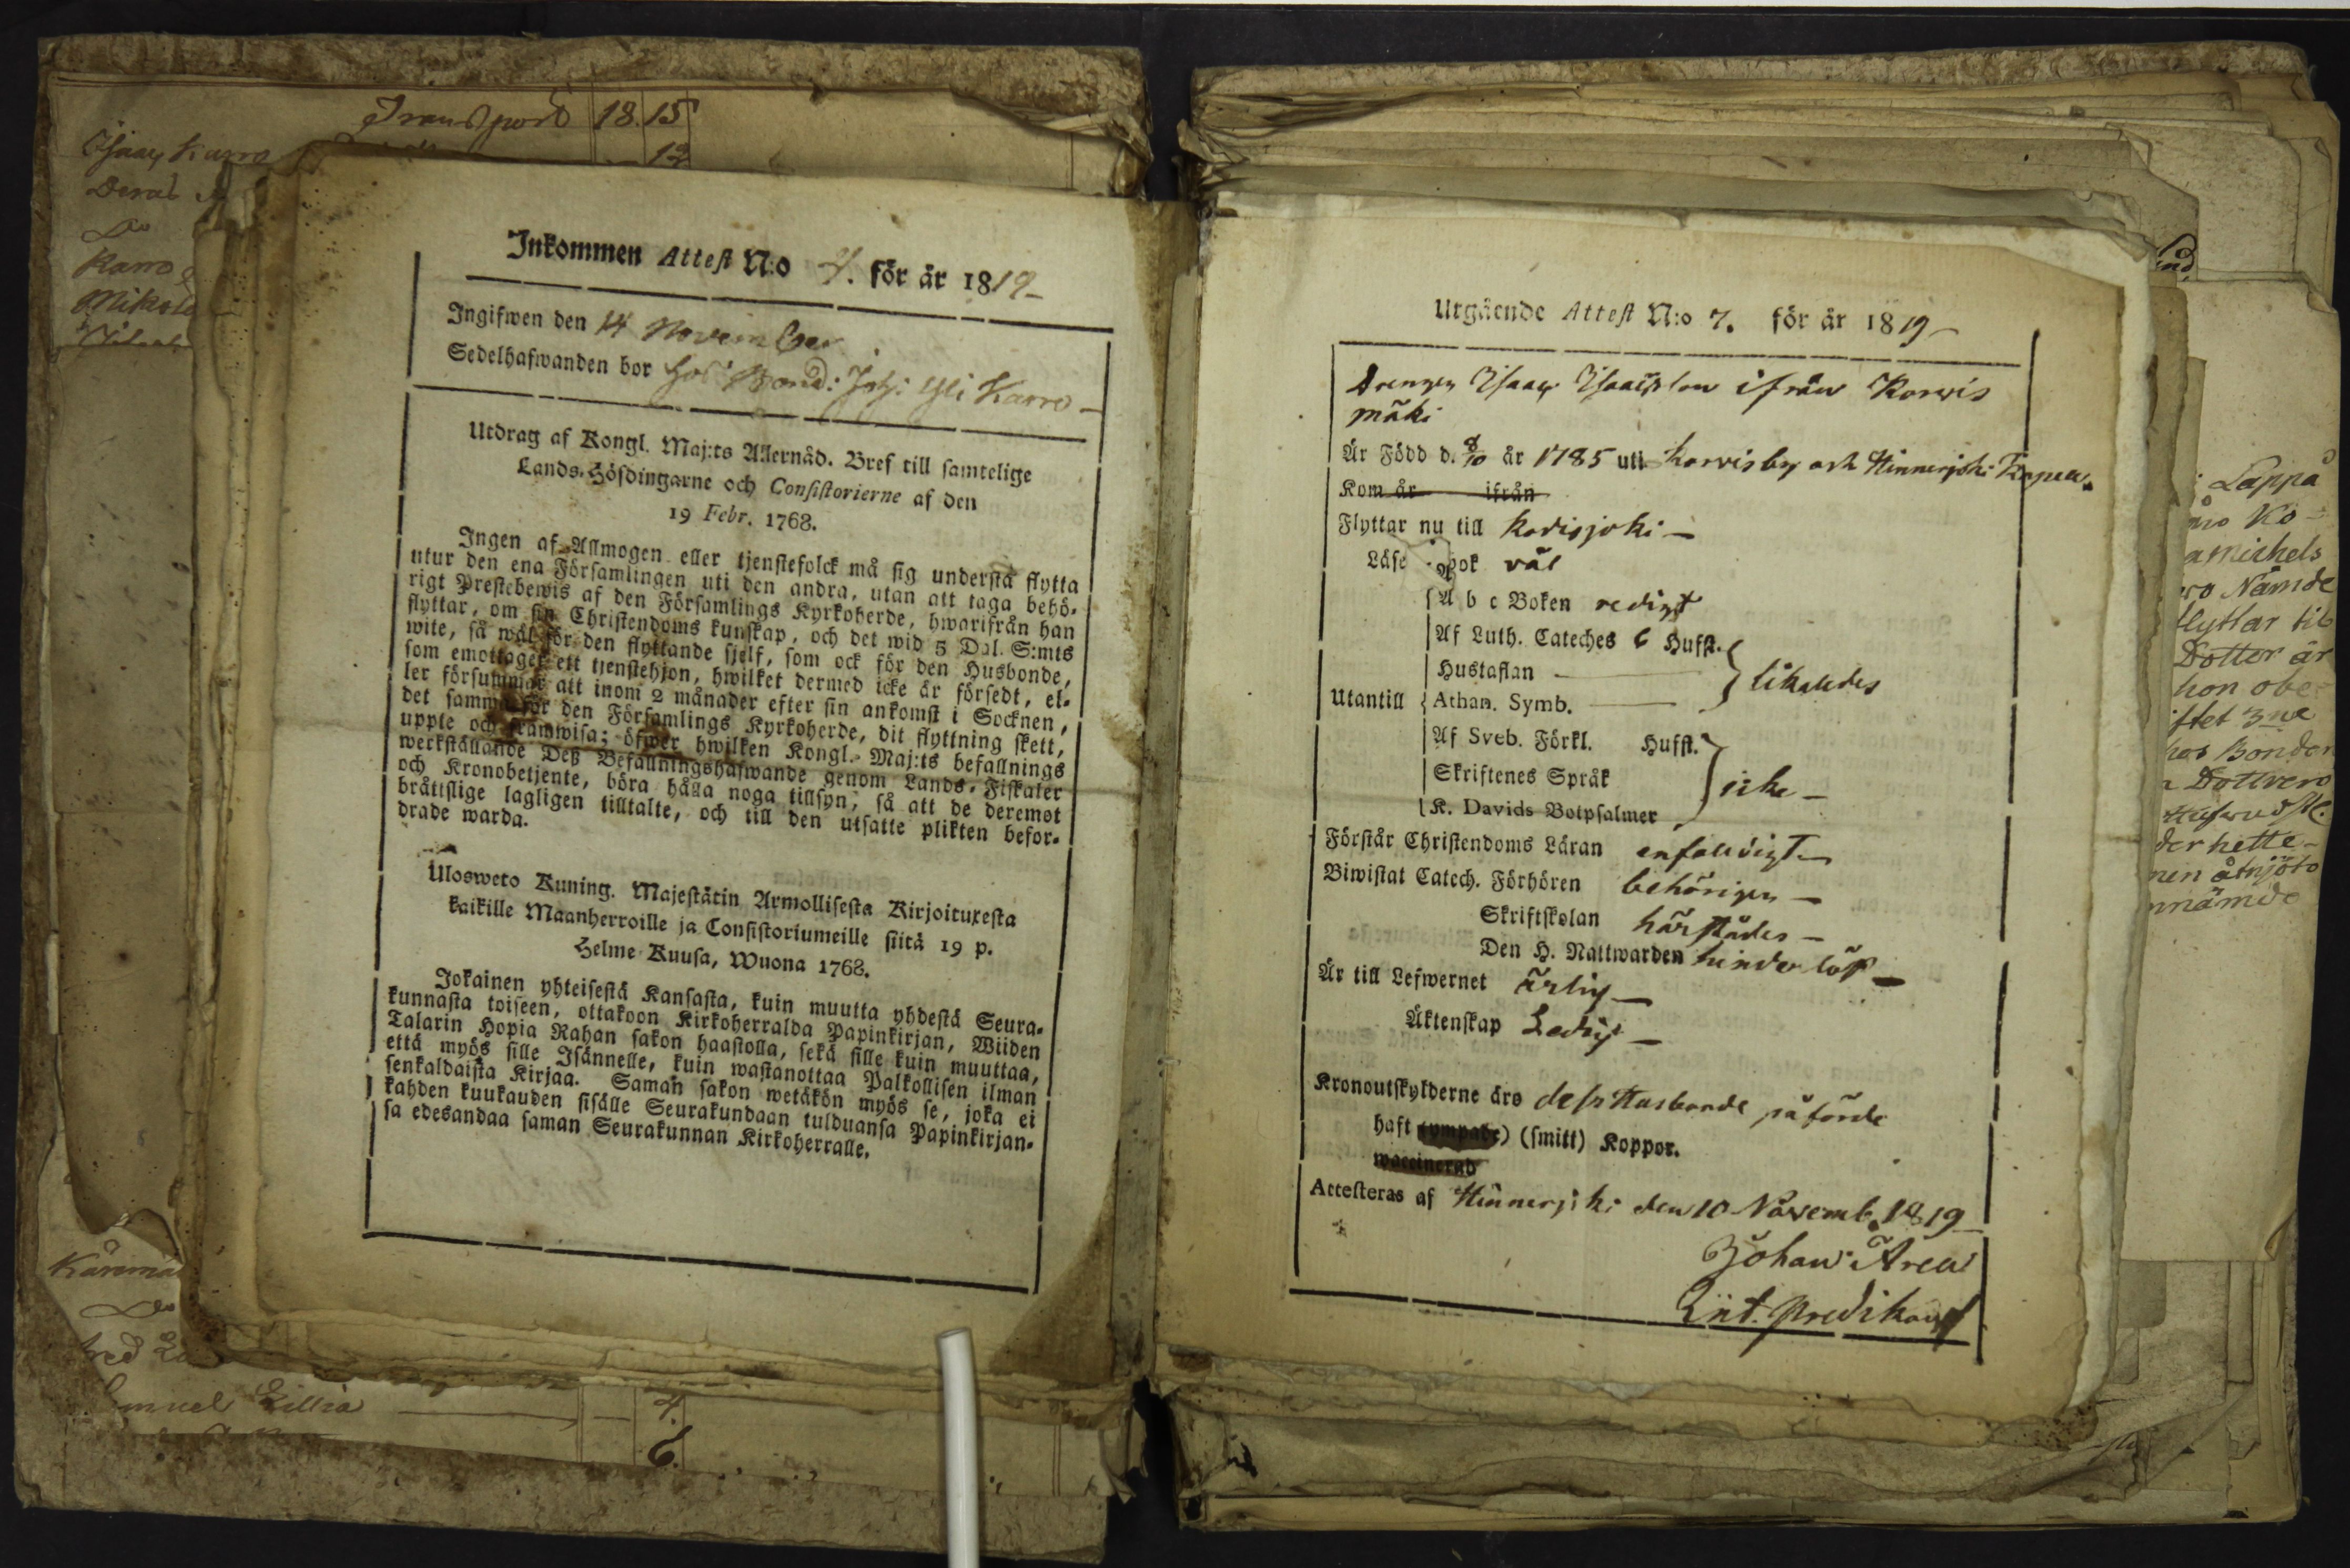 Transport 18. 15
12
Isaac Karro
Do
Karro
Mikola
Inkommen Attest N:o 4. för år 1819–
Ingifwen den 14 November
Sedelhafwanden bor hos Bond: Joh: Yli Karro –
Utdrag af Kongl. Maj:ts Allernåd. Bref till samtelige
Lands-Höfdingarne och Consistorierne af den
19 Febr. 1768.
Ingen af Allmogen eller tjenstefolck må sig understå flytta
utur den ena Församlingen uti den andra, utan att taga behö-
rigt Prestebewis af den Församlings Kyrkoherde, hwarifrån han
flyttar, om sin Christendoms kunskap, och det wid 5 Dal. S:mts
wite, så wäl för den flyttande sjelf, som ock för den Husbonde,
som emottager ett tjenstehjon, hwilket dermed icke är försedt, el-
ler försummar att inom 2 månader efter sin ankomst i Socknen,
det samma för den Församlings Kyrkoherde, dit flyttning skett,
uppte och framwisa; öfwer hwilken Kongl. Maj:ts befallnings
werkställande Deß Befallningshafwande genom Lands-Fiskaler
och Kronobetjente, böra hålla noga tillsyn, så att de deremot
bråttslige lagligen tilltalte, och till den utsatte plikten befor-
drade warda.
Ulosweto Kuning. Majestätin Armollisesta Kirjoituxesta
kaikille Maanherroille ja Consistoriumeille siitä 19 p.
Helme Kuusa, Wuona 1768.
Jokainen yhteisestä Kansasta, kuin muutta yhdestä Seura-
kunnasta toiseen, ottakoon Kirkoherralda Papinkirjan, Wiiden
Talarin Hopia Rahan sakon haastolla, sekä sille kuin muuttaa,
että myös sille Isännelle, kuin wastanottaa Palkollisen ilman
senkaldaista Kirjaa. Saman sakon wetäkön myös se, joka ei
kahden kuukauden sisälle Seurakundaan tulduansa Papinkirjan-
sa edesandaa saman Seurakunnan Kirkoherralle.
Do
Lillia 4.
6.
Utgående Attest N:o 7. för år 1819–
Drengen Isaac Isaacsson ifrån Korvis
mäki
Är Född d. 8/10 år 1785 uti Korvis by och Hinnerjoki Kapell.
Kom år ifrån
Flyttar nu till Kodisjoki –
Läse bok väl
A b c Boken redigt
Af Luth. Cateches 6 Hufst.
Hustaflan
Utantill Athan. Symb. likaledes
Af Sveb. Förkl. Hufst.
Skriftenes Språk icke –
K. Davids Botpsalmer
Förstår Christendoms Läran enfalldigt –
Biwistat Catech. Förhören behörigen –
Skriftskolan härstädes –
Den H. Nattwarden hinderlös –
Är till Lefwernet ärlig –
Äktenskap Ledig –
Kronoutskylderne äro dess Husbonde påförde
haft (ympade) (smitt) Koppor.
waccinerad
Attesteras af Hinnerjoki den 10 Novemb. 1819
Johan Area
Lappa
Ko-
amichels
Nämde
flyttar til
Dotter är
hon obe-
Bonden
Dottrero
der hette –
åtnjöto